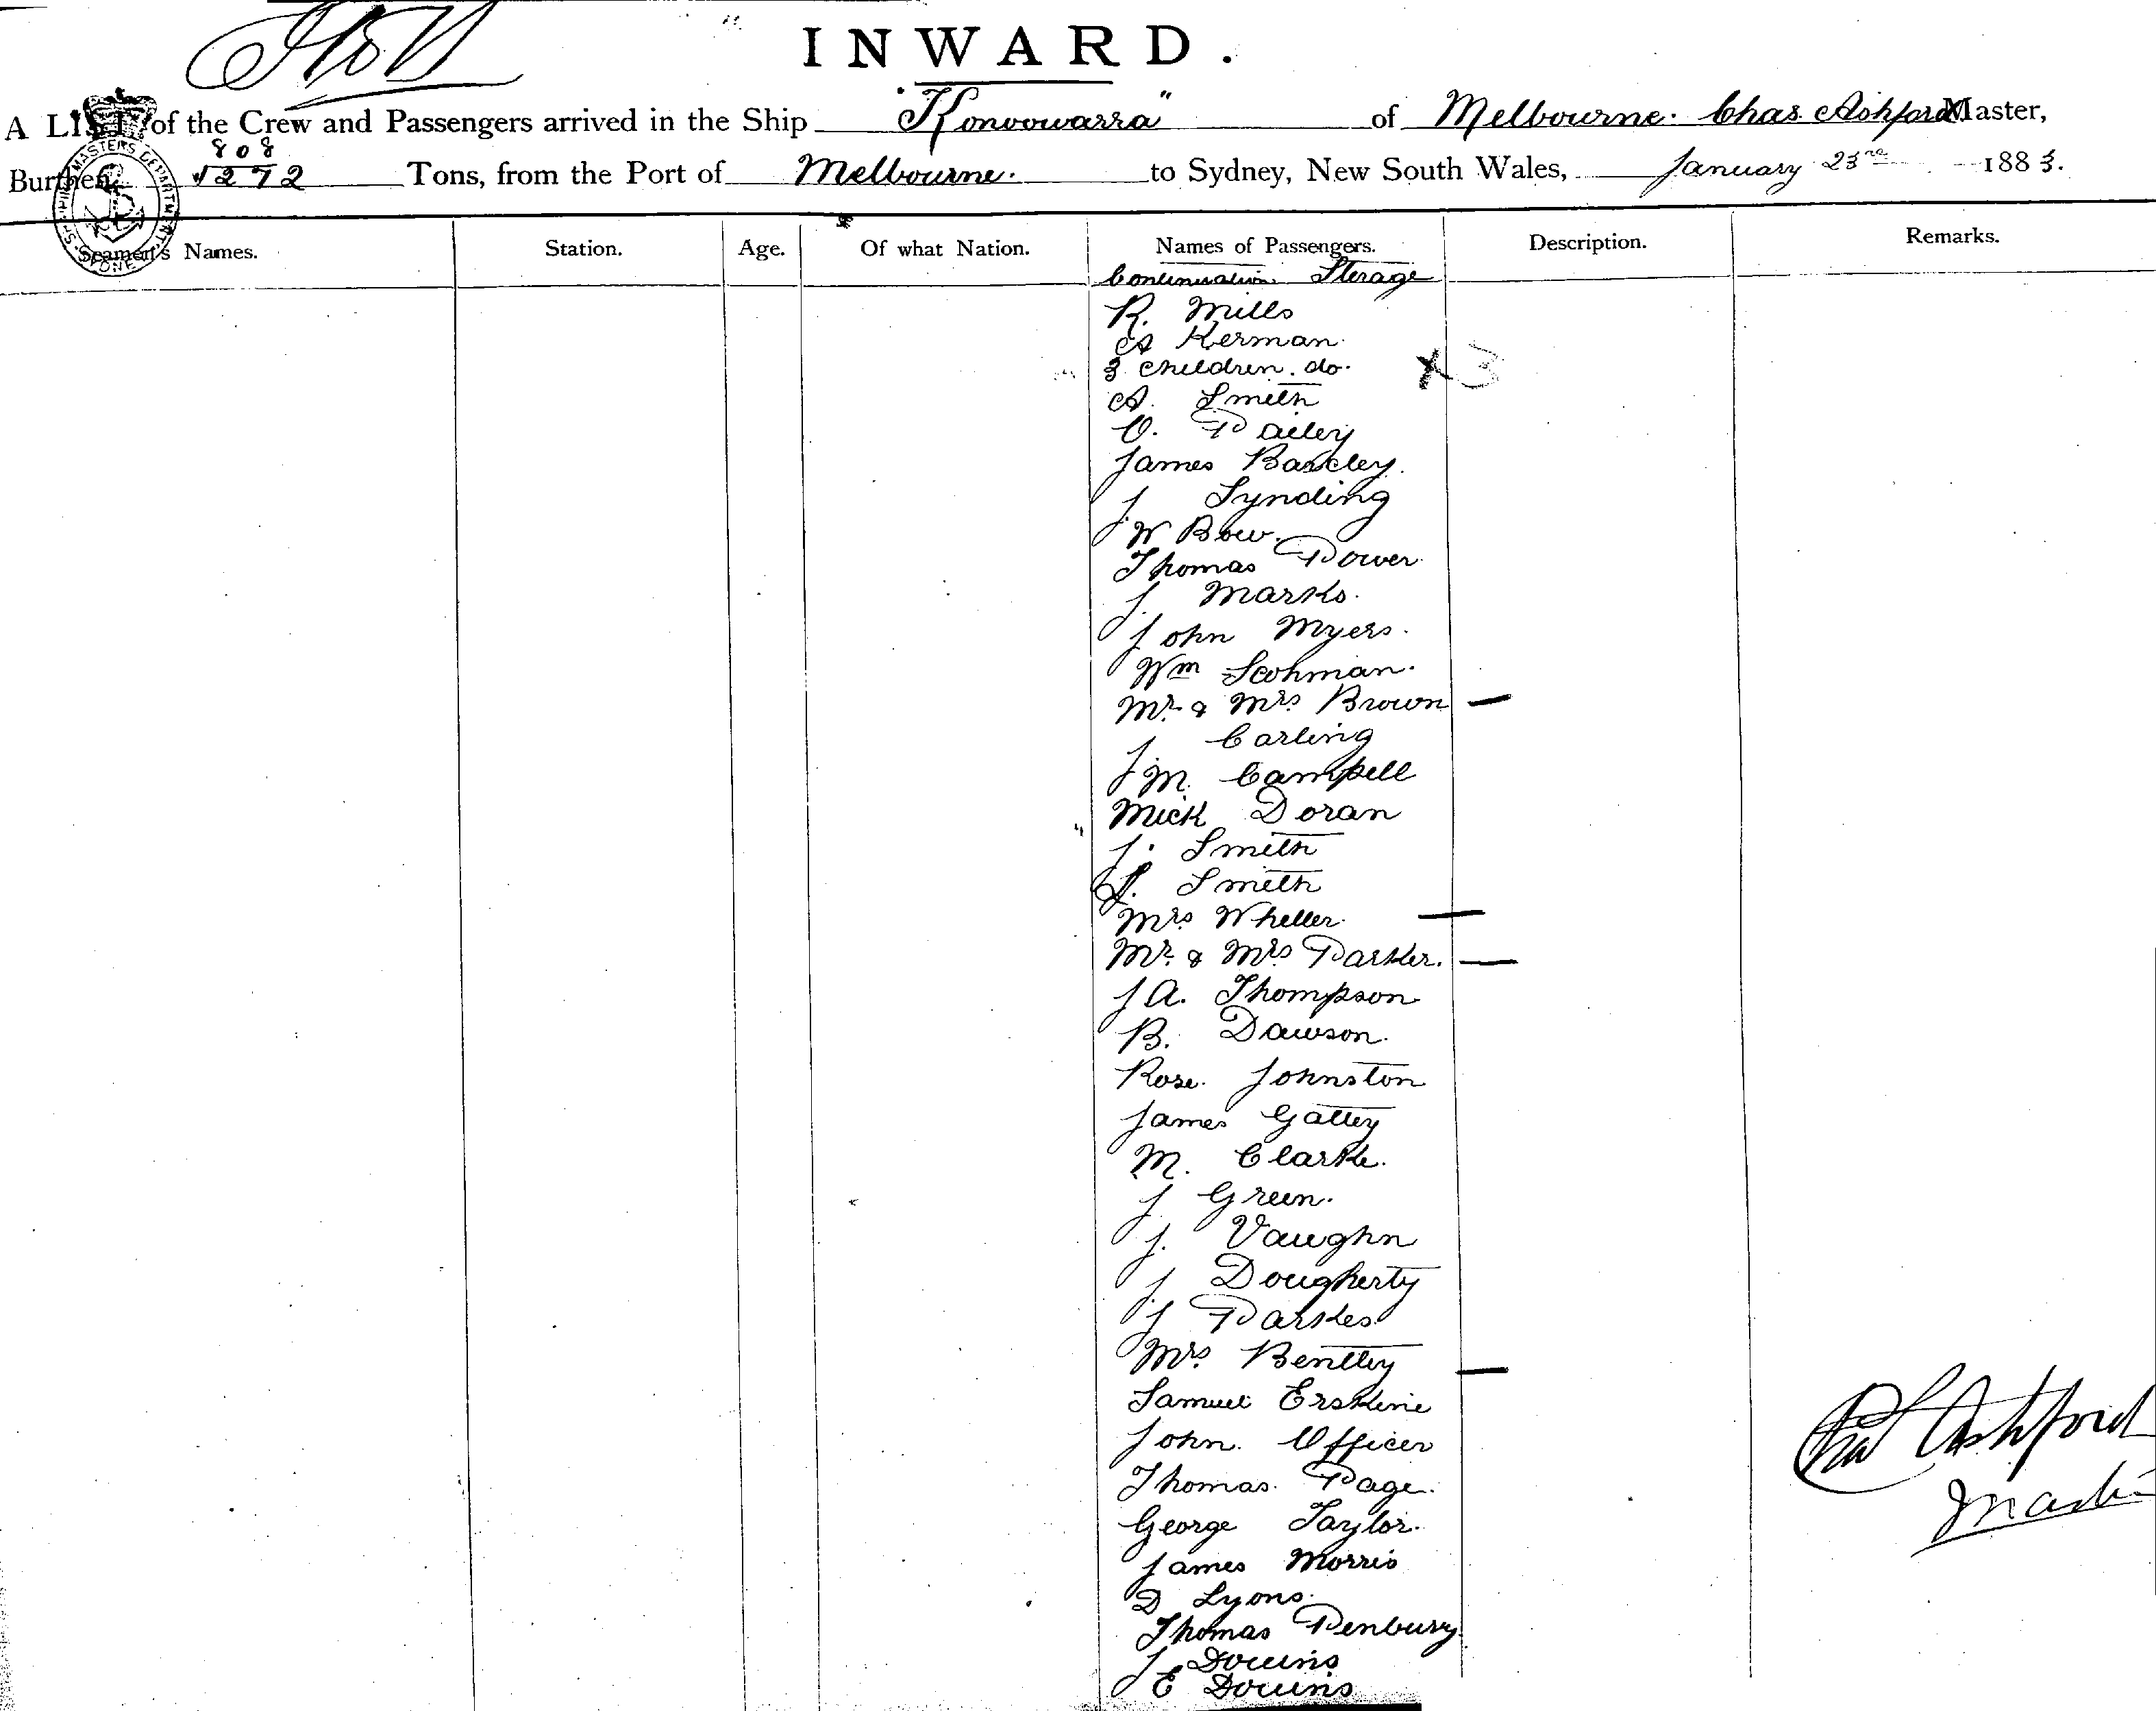 INWARD.
A LIST of the Crew and Passengers arrived in the Ship "Konoowarra" of Melbourne. Chas. Ashford Master,
808
Burthen 1272 Tons, from the Port of Melbourne. to Sydney, New South Wales, January 23rd 1883.
SHIPPING MASTER'S DEPARTMENT SYDNEY
Seamen's Names. Station. Age. Of what Nation. Names of Passengers. Description. Remarks.
Continuation Sterage
R. Mills
A Kerman.
3 Children. do. X 3
A. Smith
O. Pailey
James Barcley.
J. Synding
W Bow.
Thomas Power
J. Marks.
John Myers.
Wm Scohman.
Mr & Mrs Brown —
J Carling
J M. Campell
Mick Doran
J. Smith
S. Smith
Mrs Wheller. —
Mr. & Mrs Parker. —
J A. Thompson
B. Dawson.
Rose. Johnston
James Gattey
M. Clarke.
J Green.
J. Vaughn
J. Dougherty
J Parkes
Mrs. Bentley —
Samuel Erskine
John. Officer
Thomas. Page.
George Taylor.
James Morris
D Lyons.
Thomas Penbury.
J Downs
E Downs
Chas Ashford
Master